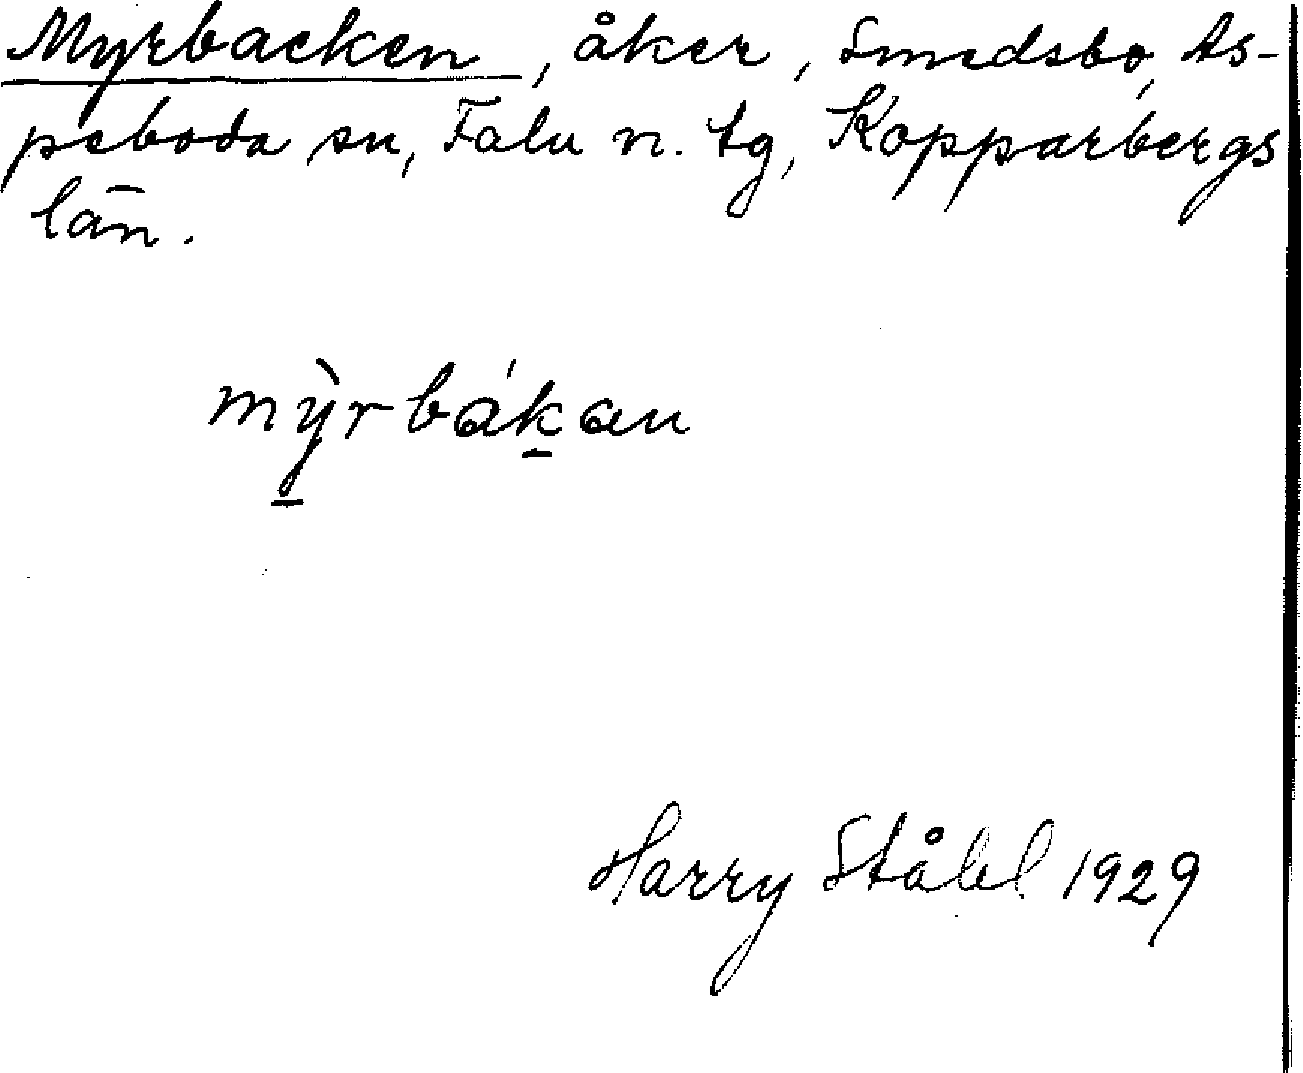 Myrbacken, åker, Smedsbo, As-
peboda sn, Falu n. tg, Kopparbergs
län.
mỳ̠rbák̠an
Harry Ståhl 1929